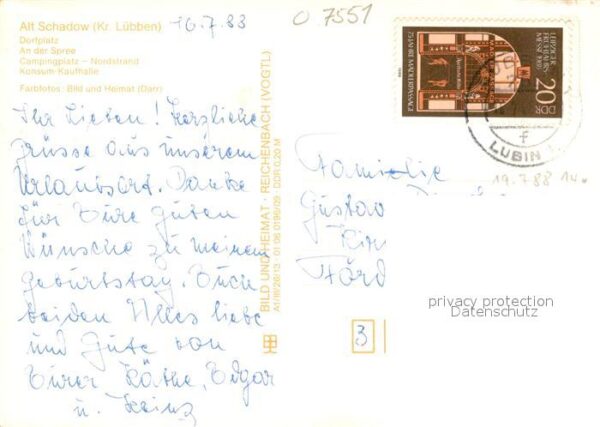 Alt Schadow (Kr. Lübben)
16.7.83
O 7551
Dorfplatz
An der Spree
Campingplatz – Nordstrand
Konsum-Kaufhalle
Farbfotos: Bild und Heimat (Darr)
Ihr Lieben! Herzliche
Grüsse aus unserem
Urlaubsort. Danke
für Eure guten
Wünsche zu meinem
Geburtstag. Euch
beiden Alles liebe
und Gute von
Eurer Käthe, Edgar
u. Heinz
BILD UND HEIMAT · REICHENBACH (VOGTL)
A1/III/26/13 01 06 0199/09 DDR 0,20 M
LEIPZIGER
FRÜHJAHRS-
MESSE 1988
75 JAHRE MÄDLERPASSAGE
DDR
20
LUBIN
f
19.7.88
Familie
Gustav
3
privacy protection
Datenschutz